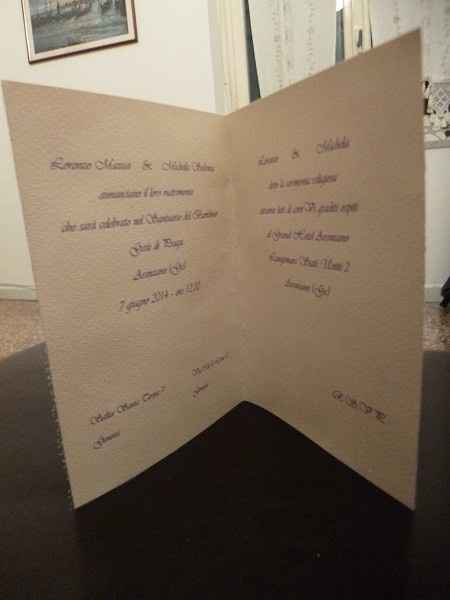 Lorenzo & Michela
annunciano il loro matrimonio
che sarà celebrato nel Santuario del Bambino
Gesù di Praga
Arenzano (Ge)
7 giugno 2014 - ore
Genova
Genova
& Michela
dopo la cerimonia religiosa
saranno lieti di averVi graditi ospiti
al Grand Hotel Arenzano
Lungomare Stati Uniti 2
Arenzano (Ge)
R.S.V.P.